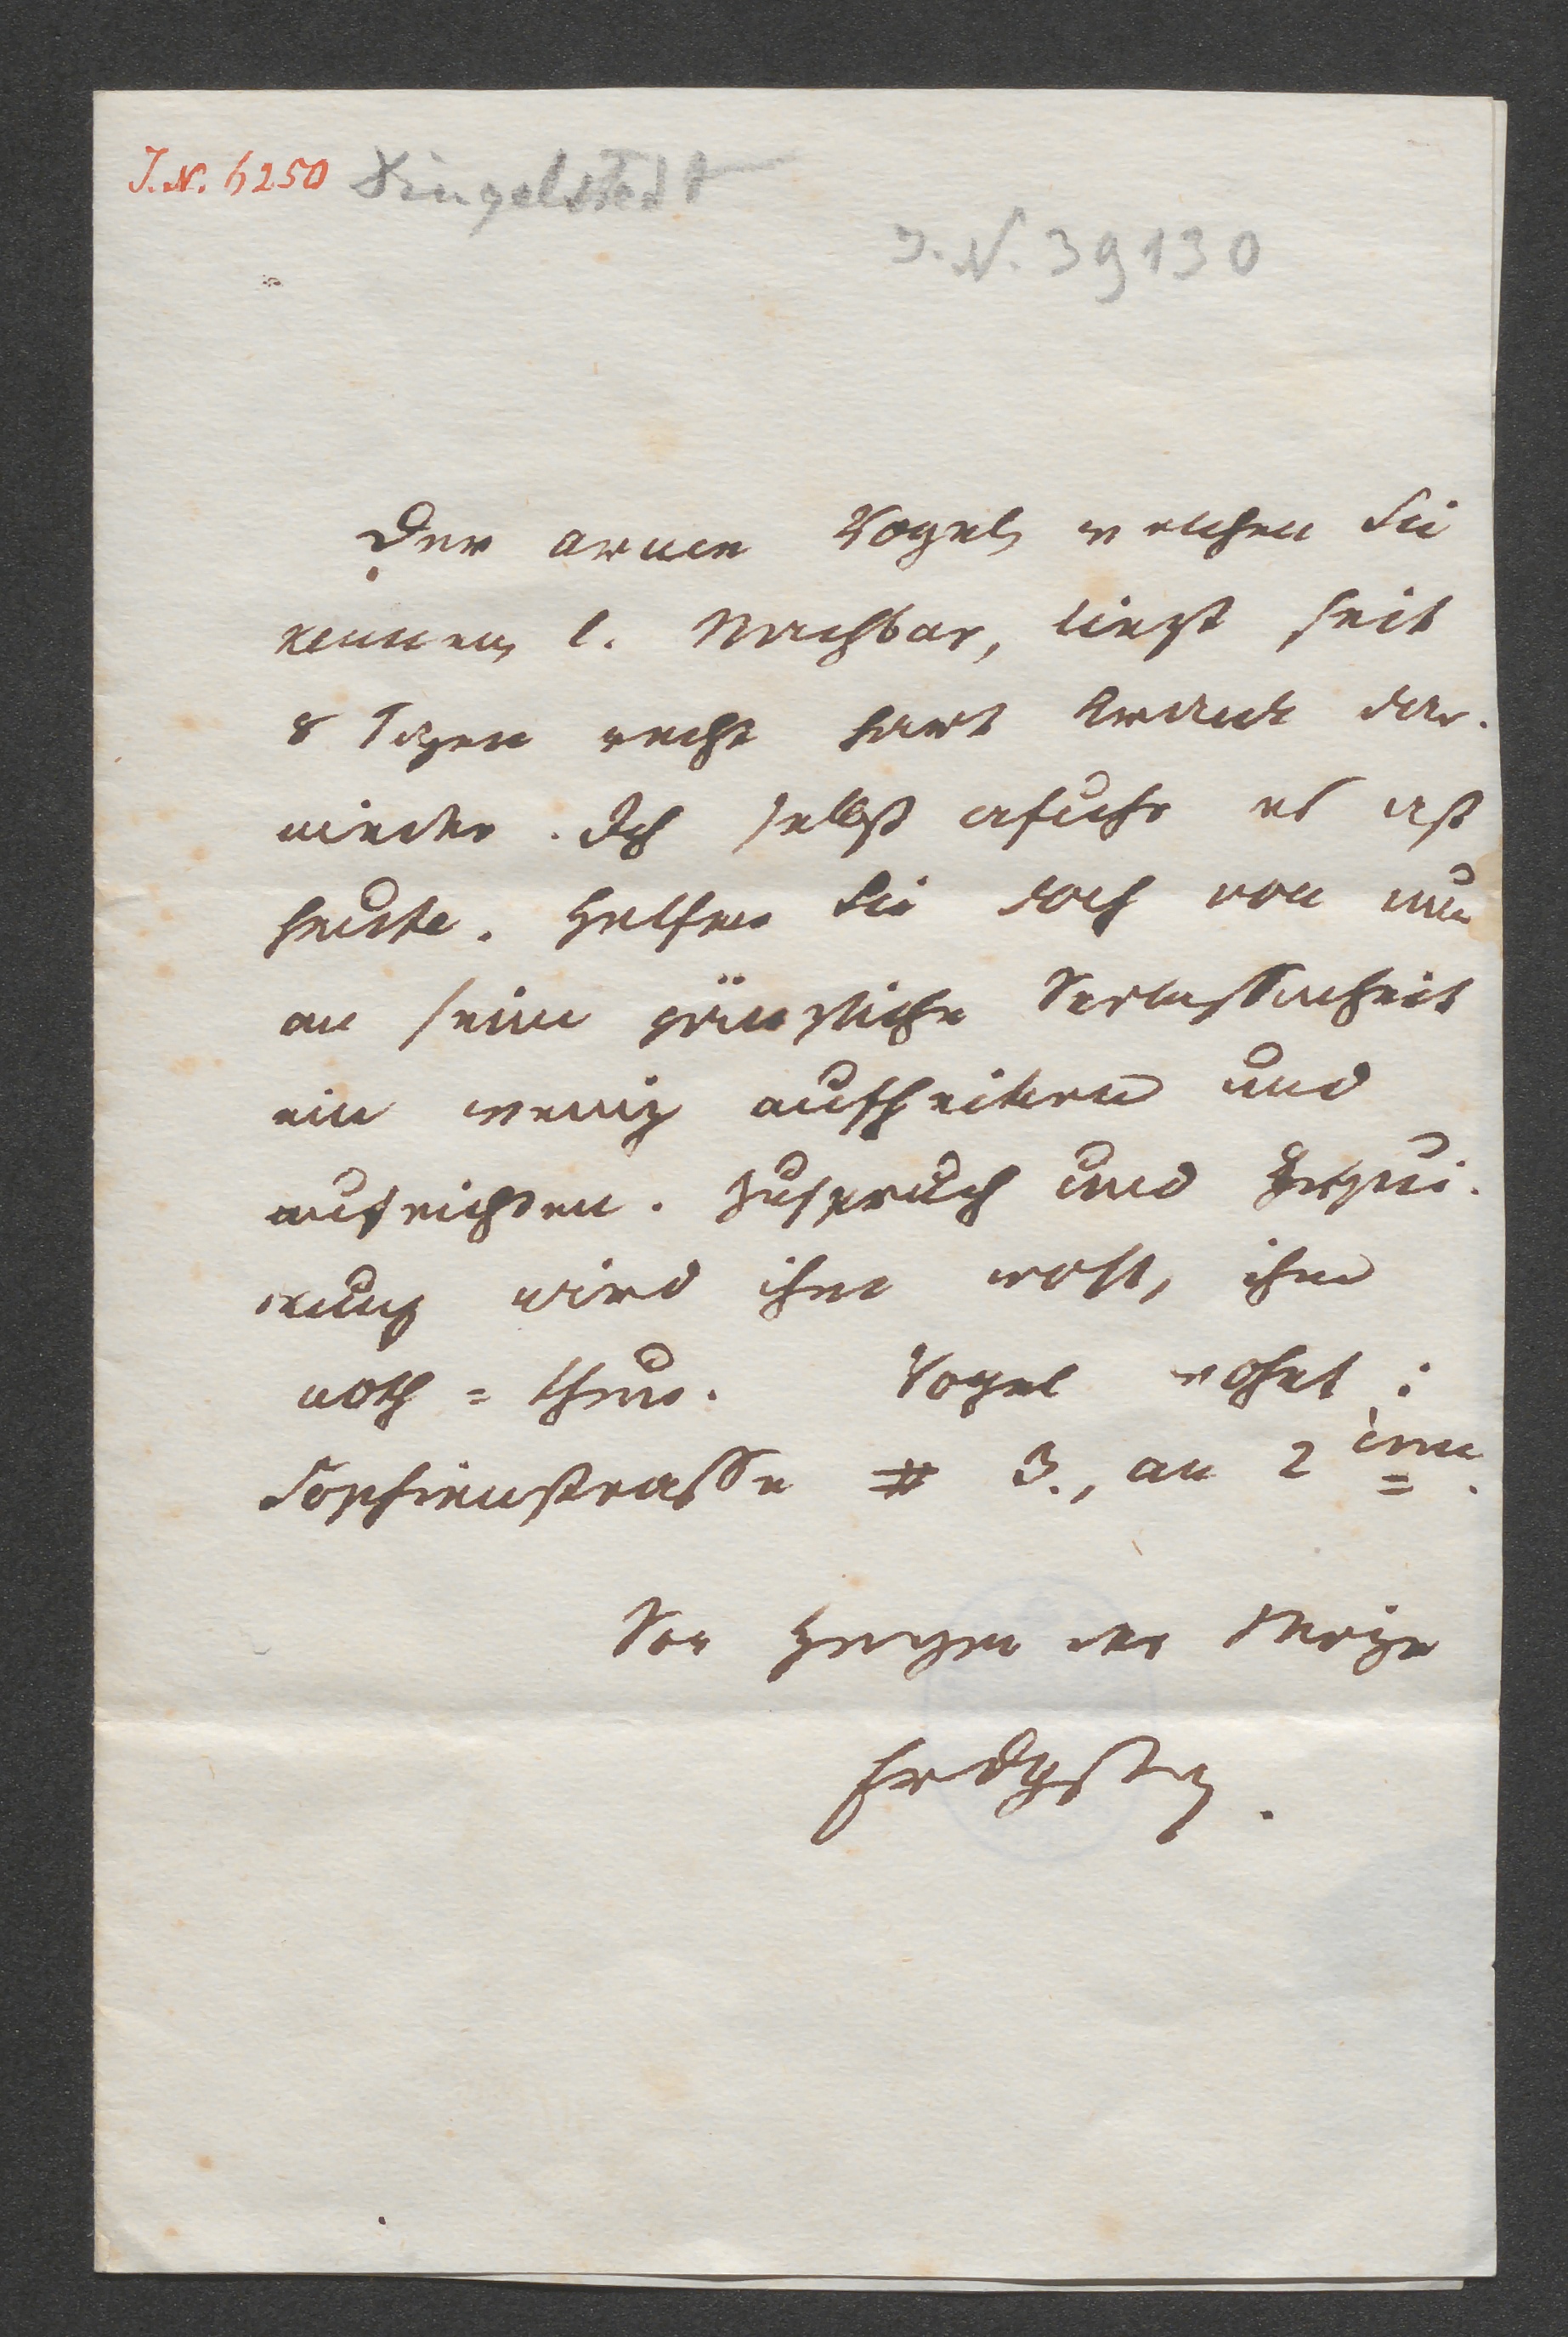 J. N. 6250 Dingelstedt
J. N. 39130
Der arme Vogel, welchen Sie
kennen, l. Nachbar, liegt seit
8 Tagen recht hart krank dar-
nieder. Ich selbst erfuhr es erst
heute. Helfen Sie doch von nun
an seine gänzliche Verlassenheit
ein wenig aufheitern und
aufrichten. Zuspruch und
wird ihm wohl, ihm
noth = thun. Vogel wohnt:
Sophienstrasse # 3., au 2
Von Herzen der Ihrige